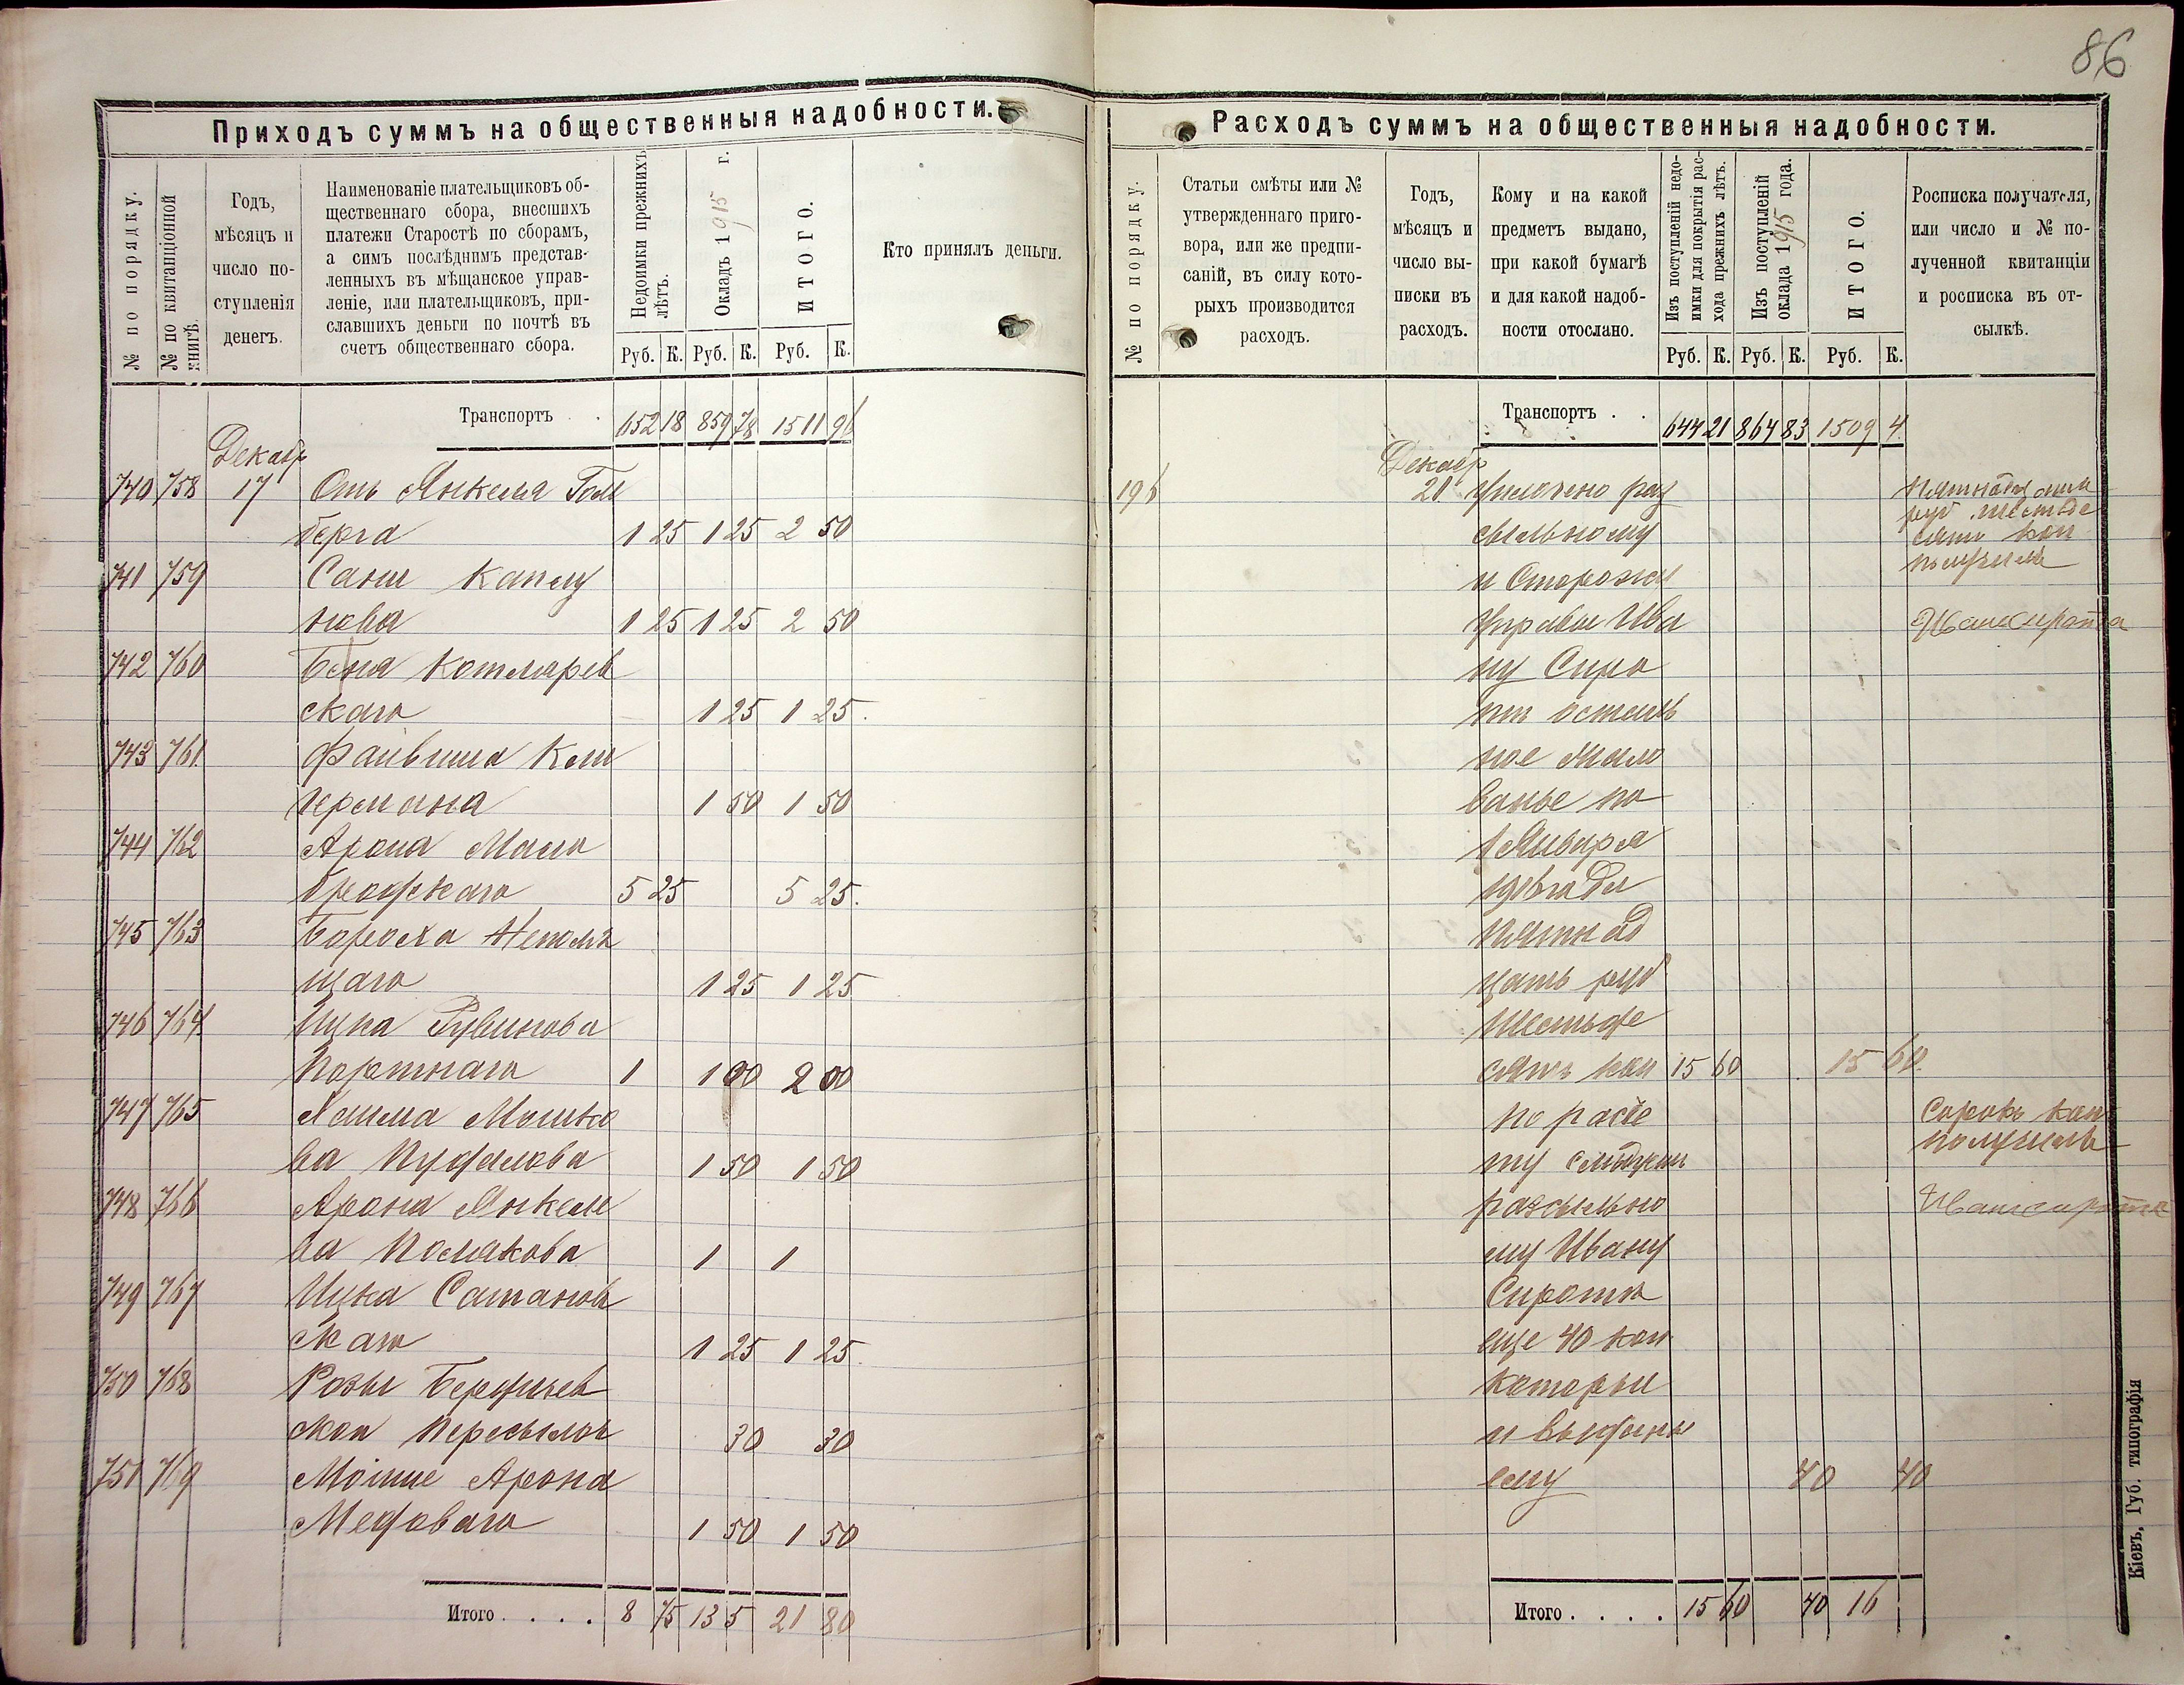 86
Приходъ суммъ на общественныя надобности.
№ по порядку.
№ по квитанціонной книгѣ.
Годъ,
мѣсяцъ и
число по-
ступленія
денегъ.
Наименованіе плательщиковъ об-
щественнаго сбора, внесшихъ
платежи Старостѣ по сборамъ,
а симъ послѣднимъ представ-
ленныхъ въ мѣщанское управ-
леніе, или плательщиковъ, при-
славшихъ деньги по почтѣ въ
счетъ общественнаго сбора.
Недоимки прежнихъ
лѣтъ.
Окладъ 1915 г.
ИТОГО.
Руб. К. Руб. К. Руб. К.
Кто принялъ деньги.
Транспортъ . . 652 18 859 78 1511 96
Декабр
740 758 17 Отъ Янкеля Голь
берга 1 25 1 25 2 50
741 759 Сани Каплу
нова 1 25 1 25 2 50
742 760 Беня Котлярев
скаго 1 25 1 25.
743 761 Файвиша Кели
чермана 1 50 1 50
744 762 Арона Мала
5 25 5 25.
745 763 Бороха Непомъ
щаго 1 25 1 25
746 764 Ицка Рувинова
Портнаго 1 1 00 2 00
747 765 Хаима Мошко
ва 1 50 1 50
748 766 Арона Янкеле
ва Полякова 1 1
749 767 Ицка Сатанов
скаго 1 25 1 25.
750 768 Розы Бердичев
ской Пересылоч 30 30
751 769 Мошше Арона
Медоваго 1 50 1 50
Итого . . . . 8 75 13 5 21 80
Расходъ суммъ на общественныя надобности.
№ по порядку.
Статьи смѣты или №
утвержденнаго приго-
вора, или же предпи-
саній, въ силу кото-
рыхъ производится
расходъ.
Годъ,
мѣсяцъ и
число вы-
писки въ
расходъ.
Кому и на какой
предметъ выдано,
при какой бумагѣ
и для какой надоб-
ности отослано.
Изъ поступленій недо-
имки для покрытія рас-
хода прежнихъ лѣтъ.
Изъ поступленій
оклада 1915 года.
ИТОГО.
Руб. К. Руб. К. Руб. К.
Росписка получателя,
или число и № по-
лученной квитанціи
и росписка въ от-
сылкѣ.
Транспортъ . . 644 21 864 83 1509 4
Декабр
196 21 Уплочено раз
сыльному
и Сторожу
Управы Ива
ну Сиро
тѣ осталь
ное жало
ванье по
1 Января
пятнад
цать руб
шестьде
сятъ коп 15 60 15 60.
по расче
ту
разсыльно
му Ивану
Сиротѣ
еще 40 коп
которые
и выданы
ему 40 40
Итого . . . . 15 60 40 16
Пятнадцать
руб шестьде
сятъ коп
получилъ
Иван Сирота
Сорокъ коп
получилъ
Иван Сирота
Кіевъ, Губ. типографія